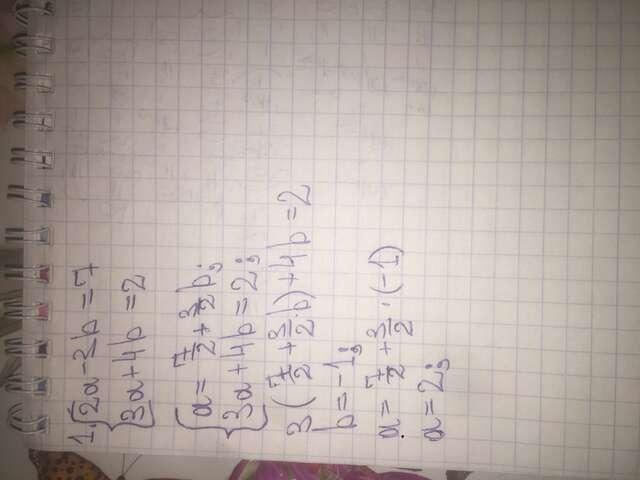 1. { 2a - 3b = 7
3a + 4b = 2
{ a = 7/2 + 3/2 b;
3a + 4b = 2;
3 (7/2 + 3/2 · b) + 4b = 2
b = -1;
a = 7/2 + 3/2 · (-1)
a = 2;